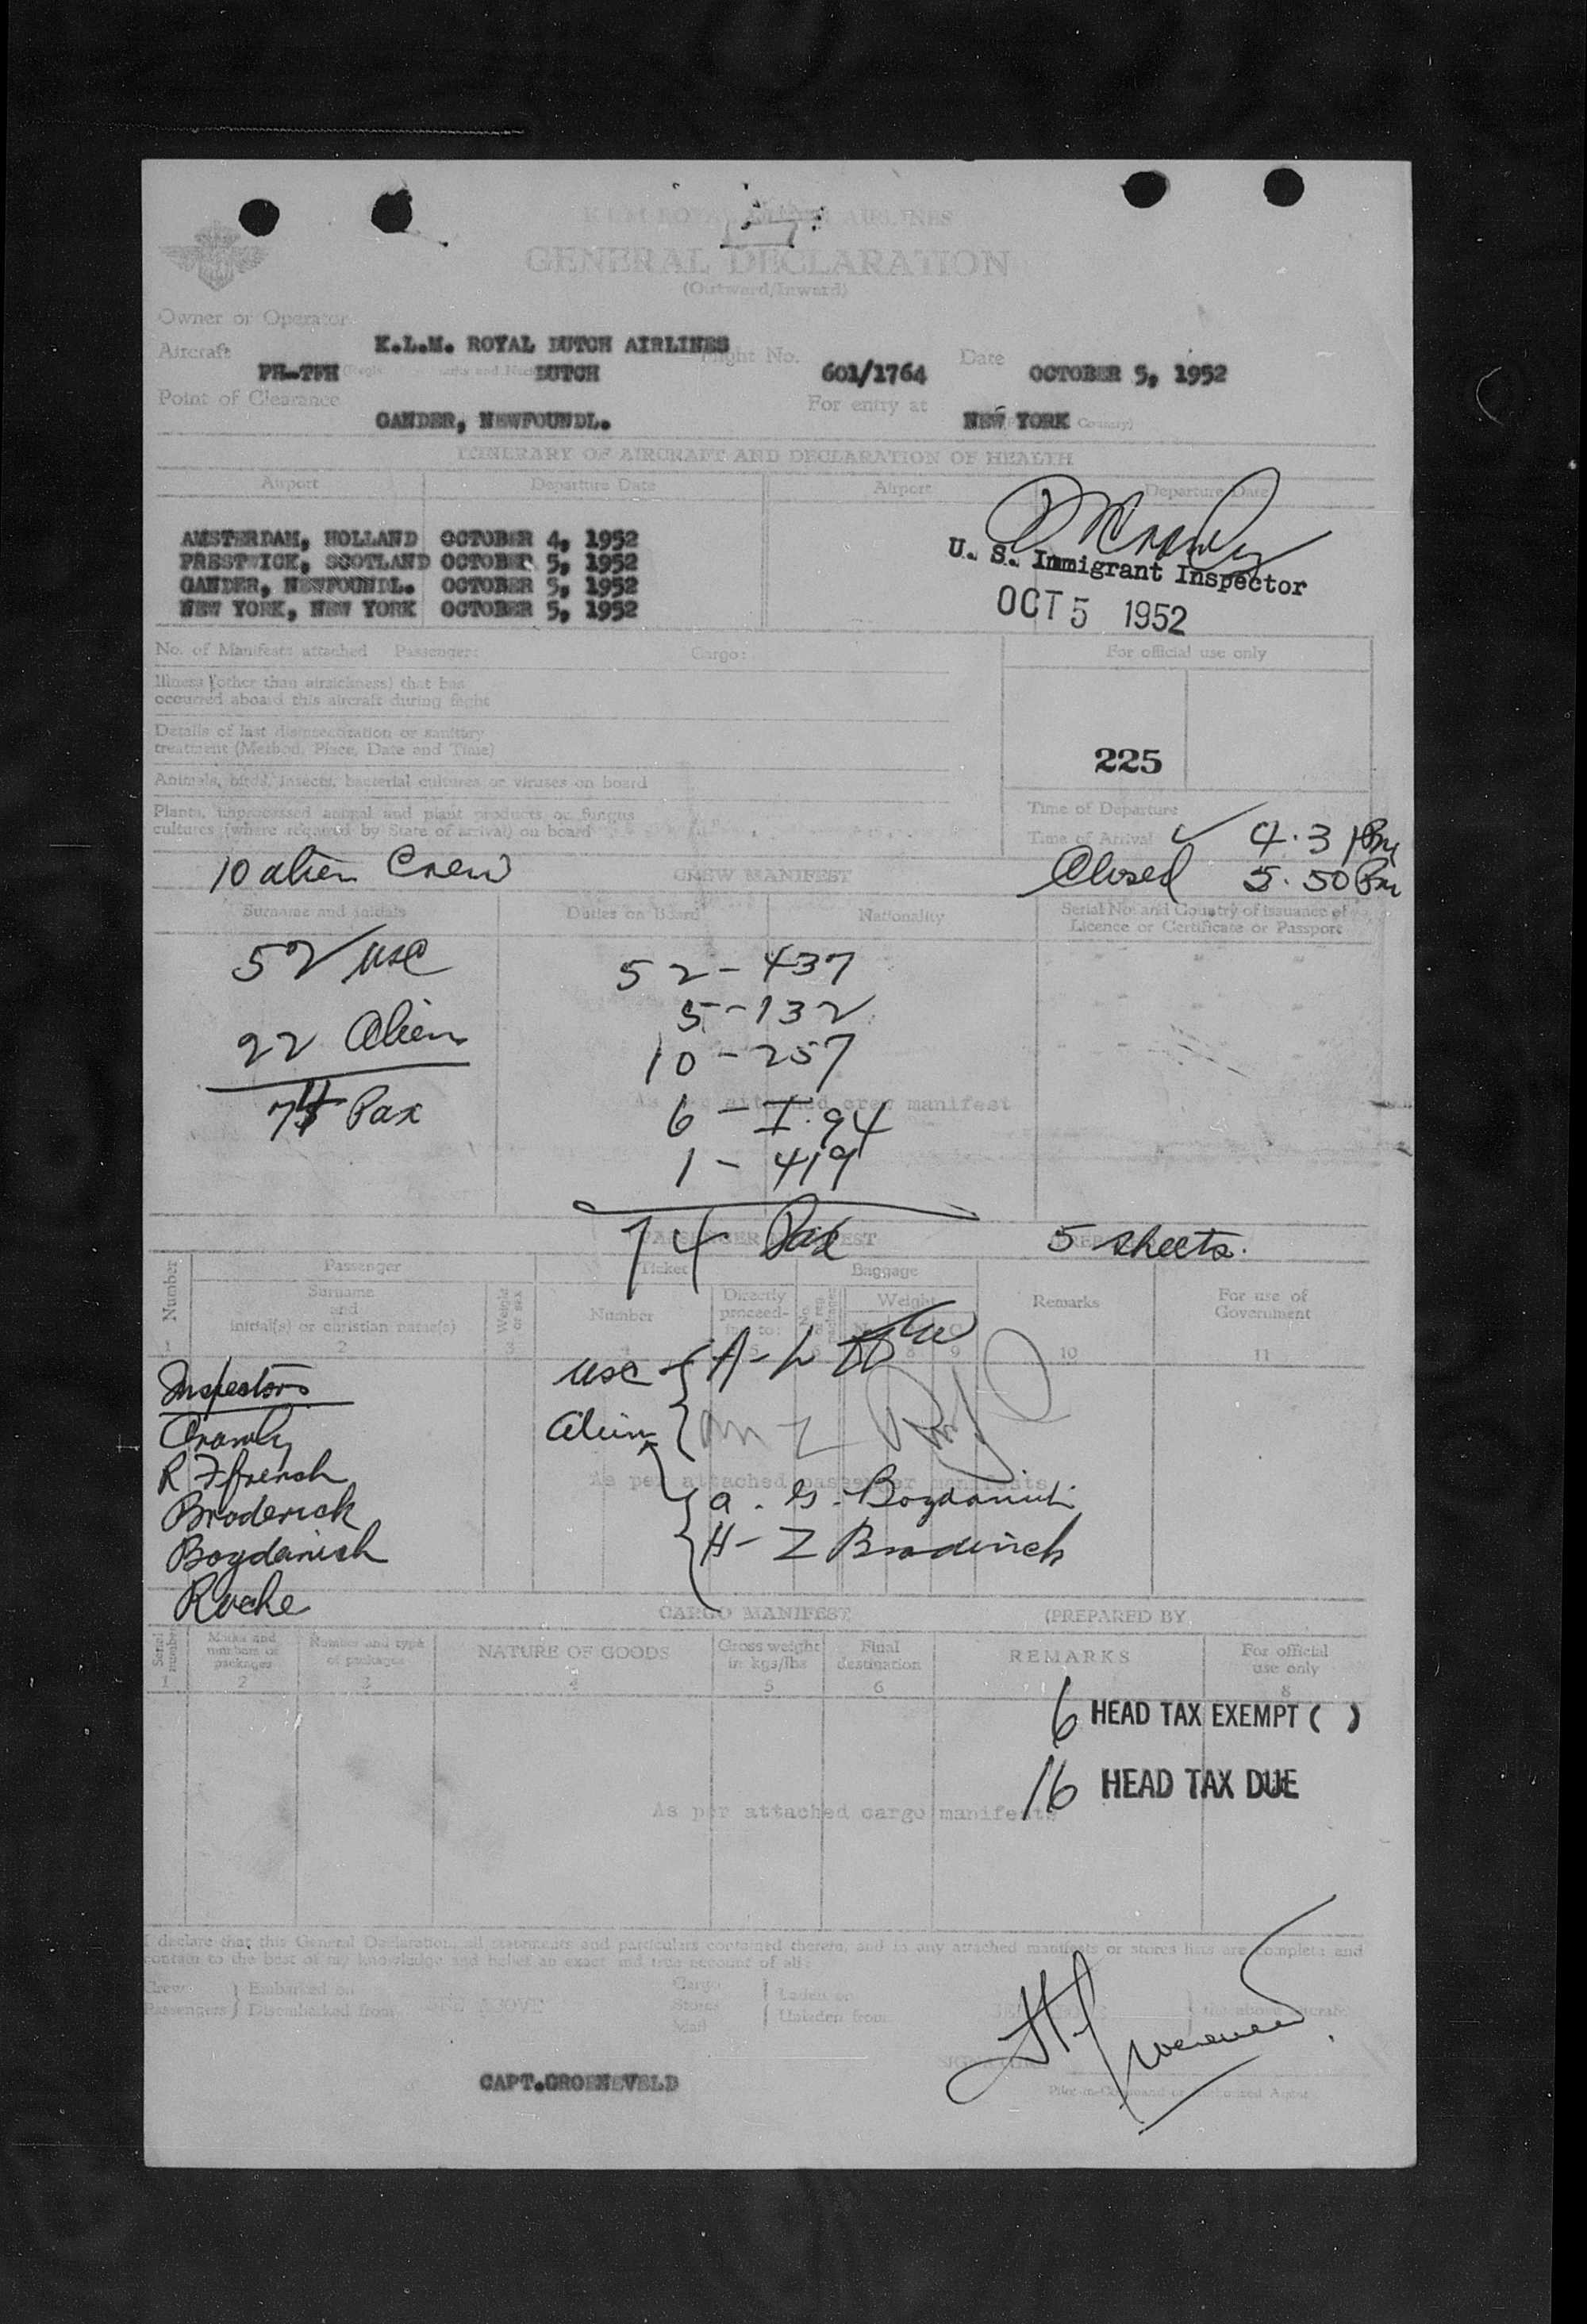 K.L.M. ROYAL DUTCH AIRLINES
GENERAL DECLARATION
(Outward/Inward)
Owner or Operator
K.L.M. ROYAL DUTCH AIRLINES
Aircraft PH-TFH DUTCH Flight No. 601/1764 Date OCTOBER 5, 1952
Point of Clearance GANDER, NEWFOUNDL. For entry at NEW YORK
ITINERARY OF AIRCRAFT AND DECLARATION OF HEALTH
Airport Departure Date Airport Departure Date
AMSTERDAM, HOLLAND OCTOBER 4, 1952
PRESTWICK, SCOTLAND OCTOBER 5, 1952
GANDER, NEWFOUNDL. OCTOBER 5, 1952
NEW YORK, NEW YORK OCTOBER 5, 1952
U. S. Immigrant Inspector
OCT 5 1952
No. of Manifests attached Passenger: Cargo:
For official use only
Illness (other than airsickness) that has
occurred aboard this aircraft during flight
Details of last disinsectization or sanitary
treatment (Method, Place, Date and Time)
225
Animals, birds, insects, bacterial cultures or viruses on board
Plants, unprocessed animal and plant products or fungus
cultures (where required by State of arrival) on board
Time of Departure
Time of Arrival 4.31 Pm
Closed 5.50 Pm
10 alien Crew
CREW MANIFEST
Surname and initials Duties on Board Nationality Serial No. and Country of issuance of
Licence or Certificate or Passport
52 USC
22 Alien
74 Pax
52 - 437
5 - 132
10 - 257
6 - I.94
1 - 419
As per attached crew manifest
74 Pax
5 sheets.
PASSENGER MANIFEST
Number Passenger Ticket Baggage
Surname
and
initial(s) or christian name(s)
Weight or sex
Number
Directly
proceed-
ing to:
Weight
Remarks
For use of
Government
2 3 9 10 11
Inspectors
Crowley
R Ffrench
Broderick
Bogdanich
Roche
USC A-L
Alien M Z
As per attached passenger manifests
A. G. Bogdanich
H - Z Broderick
CARGO MANIFEST (PREPARED BY
Serial number
Marks and
numbers of
packages
Number and type
of packages
NATURE OF GOODS
Gross weight
in kgs/lbs
Final
destination
REMARKS
For official
use only
1 2 3 4 5 6 8
6 HEAD TAX EXEMPT ( )
16 HEAD TAX DUE
As per attached cargo manifests
I declare that this General Declaration, all statements and particulars contained therein, and in any attached manifests or stores lists are complete and
contain to the best of my knowledge and belief an exact and true account of all:
Crew Passengers Embarked on
Disembarked from SEE ABOVE
Cargo
Stores
Mail
Laden on
Unladen from
the above aircraft
CAPT.GROENEVELD
Pilot-in-Command or Authorized Agent